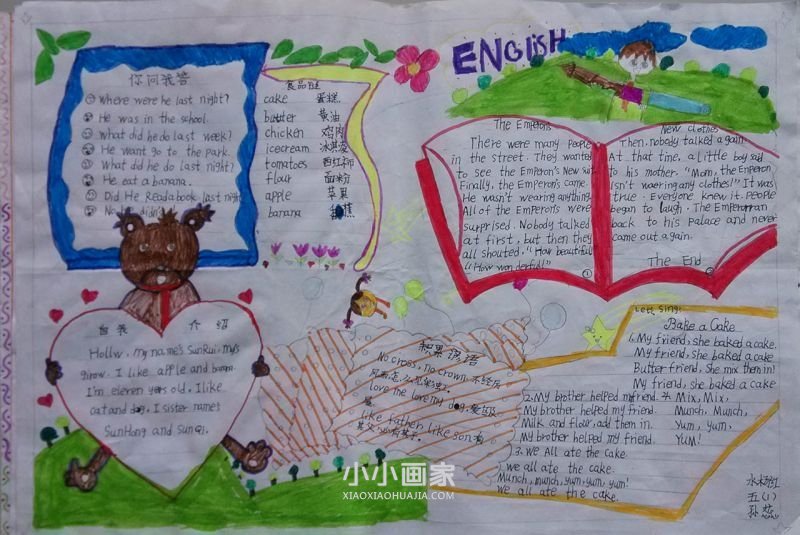 ENGLISH
你问我答
Where were he last night?
He was in the school.
What did he do last week?
He want go to the park.
What did he do last night?
He eat a banana.
Did He Read a book last night
No
didn
食品链
cake 蛋糕
butter 黄油
chicken 鸡肉
icecream 冰淇凌
tomatoes 西红柿
flour 面粉
apple 苹果
banana 蕉
The Emperors
There were many people
in the street. They wanted
to see the Emperor's New suit
Finally, the Emperor's came.
He wasn't wearing anything.
All of the Emperor's were
surprised. Nobody talked
at first, but then they
all shouted. "How beautiful
"How wonderful!"
①
New clothes
Then, nobody talked again.
At that time, a little boy said
to his mother. "Mom, the Emperor
isn't waering any clothes!" It was
true. Everyone knew it. People
began to laugh. The Emperor ran
back to his palace and never
came out again.
The End
自我介绍
Hollw, my name's SunRui, mys
girow. I like apple and banana.
I'm eleven years old, I like
cat and dog, I sister names
SunHong and SunQi.
积累谚语
No cross, no crown. 不经风
雨,怎
love me love my dog, 爱屋及
屋
like father like son 有
其父必有其子.
Let's Sing!
Bake a Cake
1. My friend, she baked a cake.
My friend, she baked a cake.
Butter friend, she mix them in!
My friend, she baked a cake
2. My brother helped my friend. 4. Mix, Mix,
My brother helped my friend. Munch, Munch,
Milk and flour, add them in. Yum, Yum,
My brother helped my friend. Yum!
3. We all ate the cake.
we all ate the cake.
Munch, munch, yum, yum, yum!
we all ate the cake.
五(1)
孙
小小画家
XIAOXIAOHUAJIA.COM